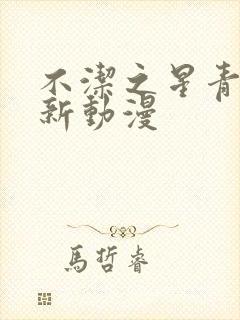 不潔之星青
新動漫
馬哲睿